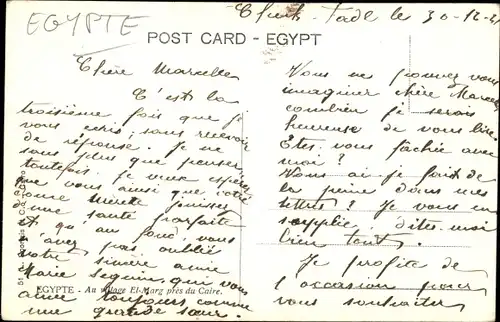 EGYPTE
le 30-12-
POST CARD - EGYPT
Chère Marcelle
C'est la
troisième fois que je
vous écris; sans recevoir
de réponse. Je ne
sais plus que penser
toutefois je veux espérer
que vous ainsi que votre
bonne mère jouissez
d'une santé parfaite
et qu'au fond, vous
n'avez pas oublié
votre sincère amie
Marie qui vous
aime toujours comme
une grande sœur.
EGYPTE - Au village El-Marg près du Caire.
Vous ne pouvez vous
imaginer chère Marcelle
combien je serais
heureuse de vous lire.
Êtes-vous fâchée avec
moi?
Vous ai-je fait de
la peine dans mes
lettres? Je vous en
supplie, dites-moi
bien tout.
Je profite de
l'occasion pour
vous souhaiter